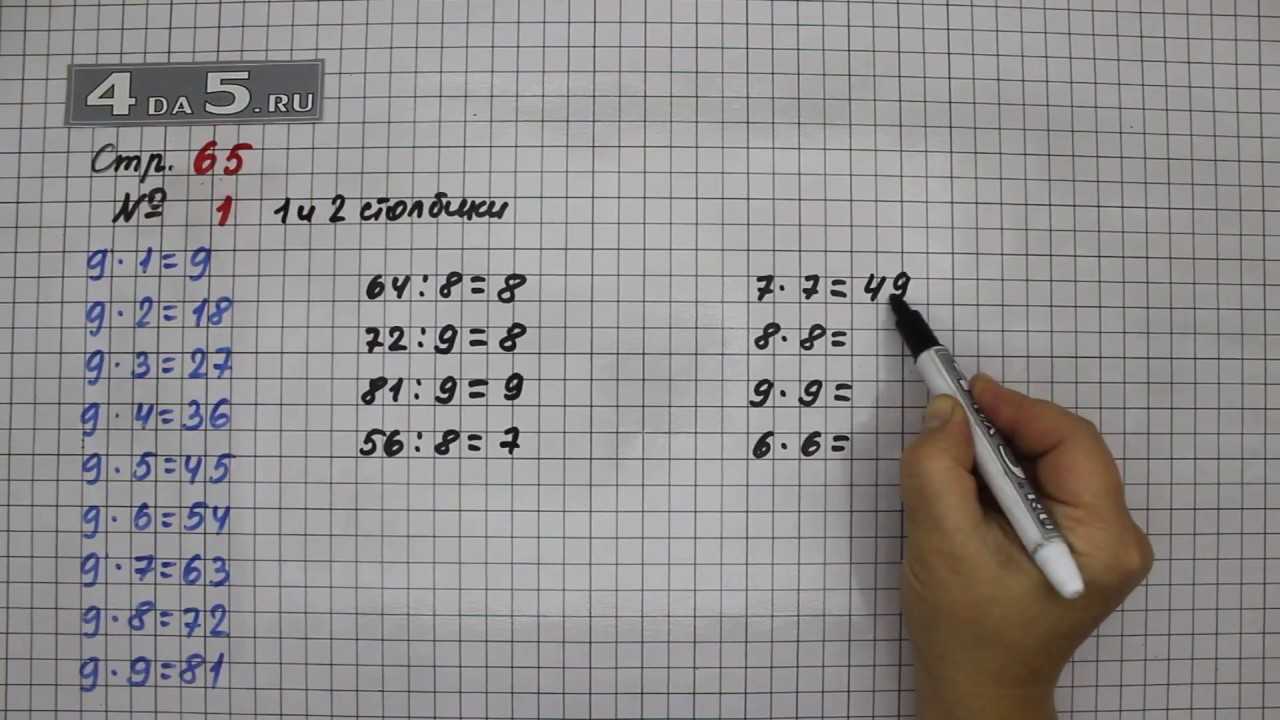 4DA5.RU
Стр. 65
№ 1 1 и 2 столбики
9·1=9
9·2=18
9·3=27
9·4=36
9·5=45
9·6=54
9·7=63
9·8=72
9·9=81
64:8=8
72:9=8
81:9=9
56:8=7
7·7=49
8·8=
9·9=
6·6=